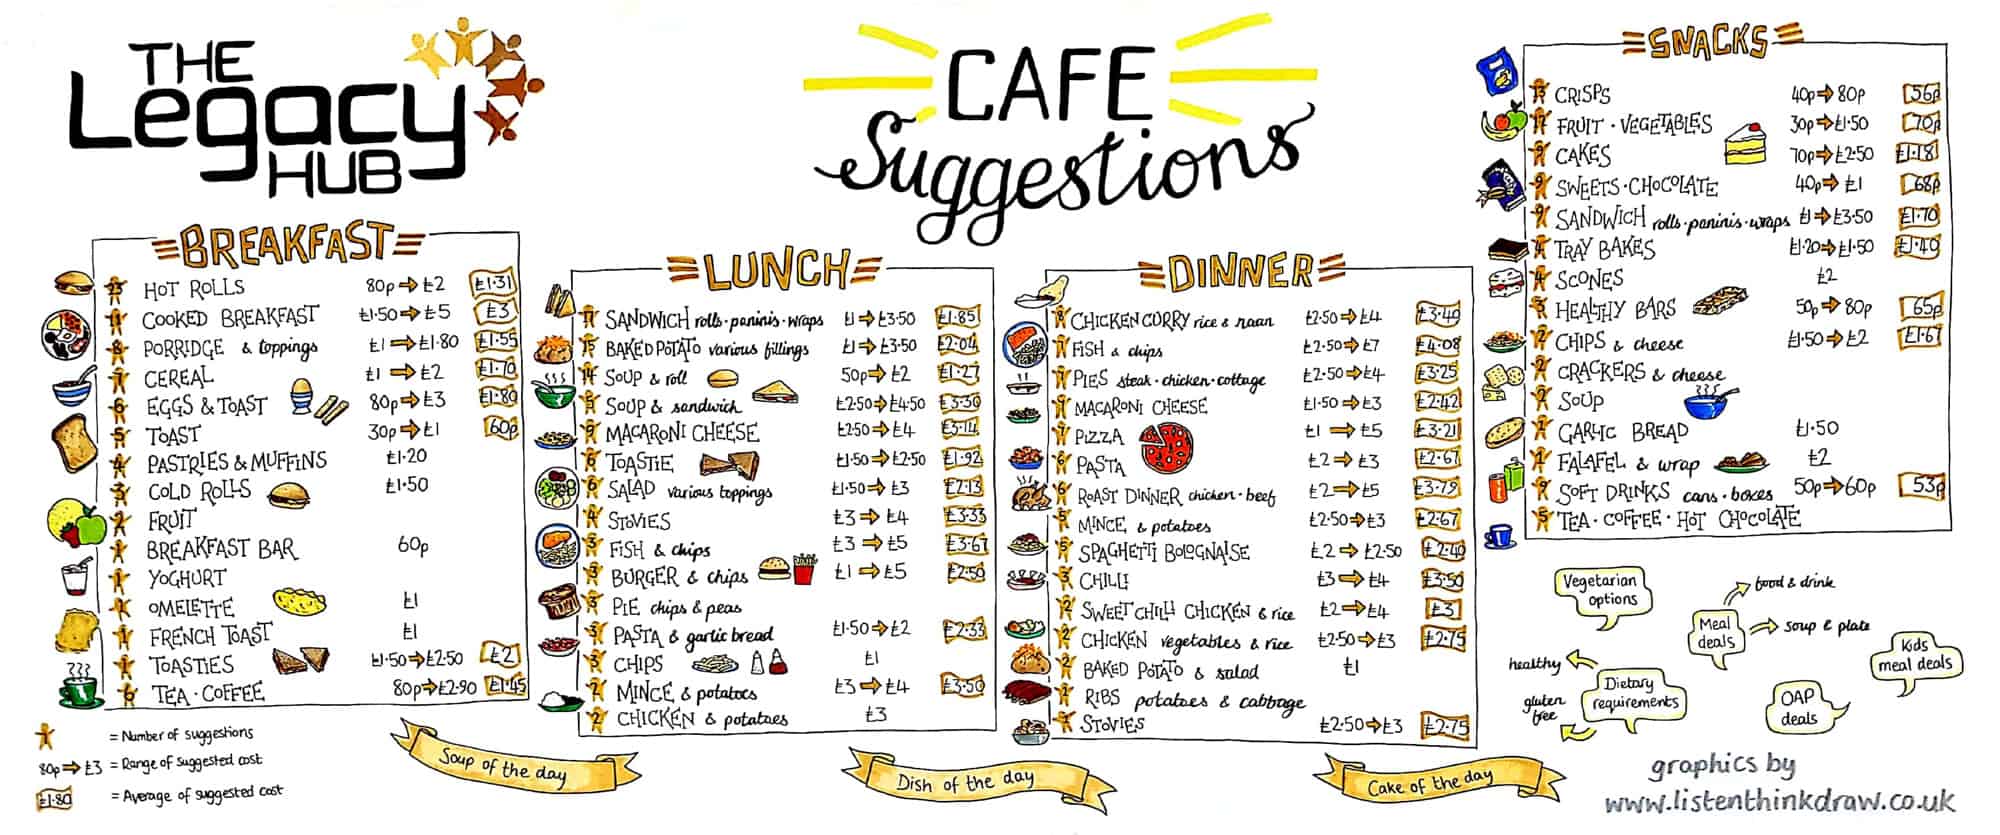 THE
Legacy
HUB
CAFE
Suggestions
BREAKFAST
HOT ROLLS 80p → £2 £1·31
COOKED BREAKFAST £1·50 → £5 £3
8 PORRIDGE & toppings £1 → £1·80 £1·55
7 CEREAL £1 → £2 £1·10
6 EGGS & TOAST 80p → £3 £1·80
5 TOAST 30p → £1 60p
4 PASTRIES & MUFFINS £1·20
3 COLD ROLLS £1·50
2 FRUIT
1 BREAKFAST BAR 60p
1 YOGHURT
1 OMELETTE £1
1 FRENCH TOAST £1
1 TOASTIES £1·50 → £2·50 £2
6 TEA · COFFEE 80p → £2·90 £1·45
1 = Number of suggestions
80p → £3 = Range of suggested cost
£1·80 = Average of suggested cost
LUNCH
17 SANDWICH rolls · paninis · wraps £1 → £3·50 £1·85
15 BAKED POTATO various fillings £1 → £3·50 £2·04
14 SOUP & roll 50p → £2 £1·27
SOUP & sandwich £2·50 → £4·50 £3·30
9 MACARONI CHEESE £2·50 → £4 £3·14
6 TOASTIE £1·50 → £2·50 £1·92
6 SALAD various toppings £1·50 → £3 £2·13
4 STOVIES £3 → £4 £3·33
3 FISH & chips £3 → £5 £3·67
3 BURGER & chips £1 → £5 £2·50
3 PIE chips & peas
3 PASTA & garlic bread £1·50 → £2 £2·33
3 CHIPS £1
2 MINCE & potatoes £3 → £4 £3·50
2 CHICKEN & potatoes £3
DINNER
CHICKEN CURRY rice & naan £2·50 → £4 £3·40
FISH & chips £2·50 → £7 £4·08
PIES steak · chicken · cottage £2·50 → £4 £3·25
MACARONI CHEESE £1·50 → £3 £2·42
7 PIZZA £1 → £5 £3·21
6 PASTA £2 → £3 £2·67
6 ROAST DINNER chicken · beef £2 → £5 £3·79
5 MINCE & potatoes £2·50 → £3 £2·67
5 SPAGHETTI BOLOGNAISE £2 → £2·50 £2·40
3 CHILLI £3 → £4 £3·50
2 SWEET CHILLI CHICKEN & rice £2 → £4 £3
2 CHICKEN vegetables & rice £2·50 → £3 £2·75
2 BAKED POTATO & salad £1
1 RIBS potatoes & cabbage
STOVIES £2·50 → £3 £2·75
SNACKS
13 CRISPS 40p → 80p 56p
FRUIT · VEGETABLES 30p → £1·50 70p
9 CAKES 70p → £2·50 £1·18
9 SWEETS · CHOCOLATE 40p → £1 68p
9 SANDWICH rolls · paninis · wraps £1 → £3·50 £1·70
4 TRAY BAKES £1·20 → £1·50 £1·40
4 SCONES £2
3 HEALTHY BARS 50p → 80p 65p
2 CHIPS & cheese £1·50 → £2 £1·67
2 CRACKERS & cheese
2 SOUP
1 GARLIC BREAD £1·50
1 FALAFEL & wrap £2
9 SOFT DRINKS cans · boxes 50p → 60p 53p
5 TEA · COFFEE · HOT CHOCOLATE
Vegetarian
options
Meal
deals
food & drink
soup & plate
Kids
meal deals
healthy
gluten
free
Dietary
requirements
OAP
deals
Soup of the day
Dish of the day
Cake of the day
graphics by
www.listenthinkdraw.co.uk